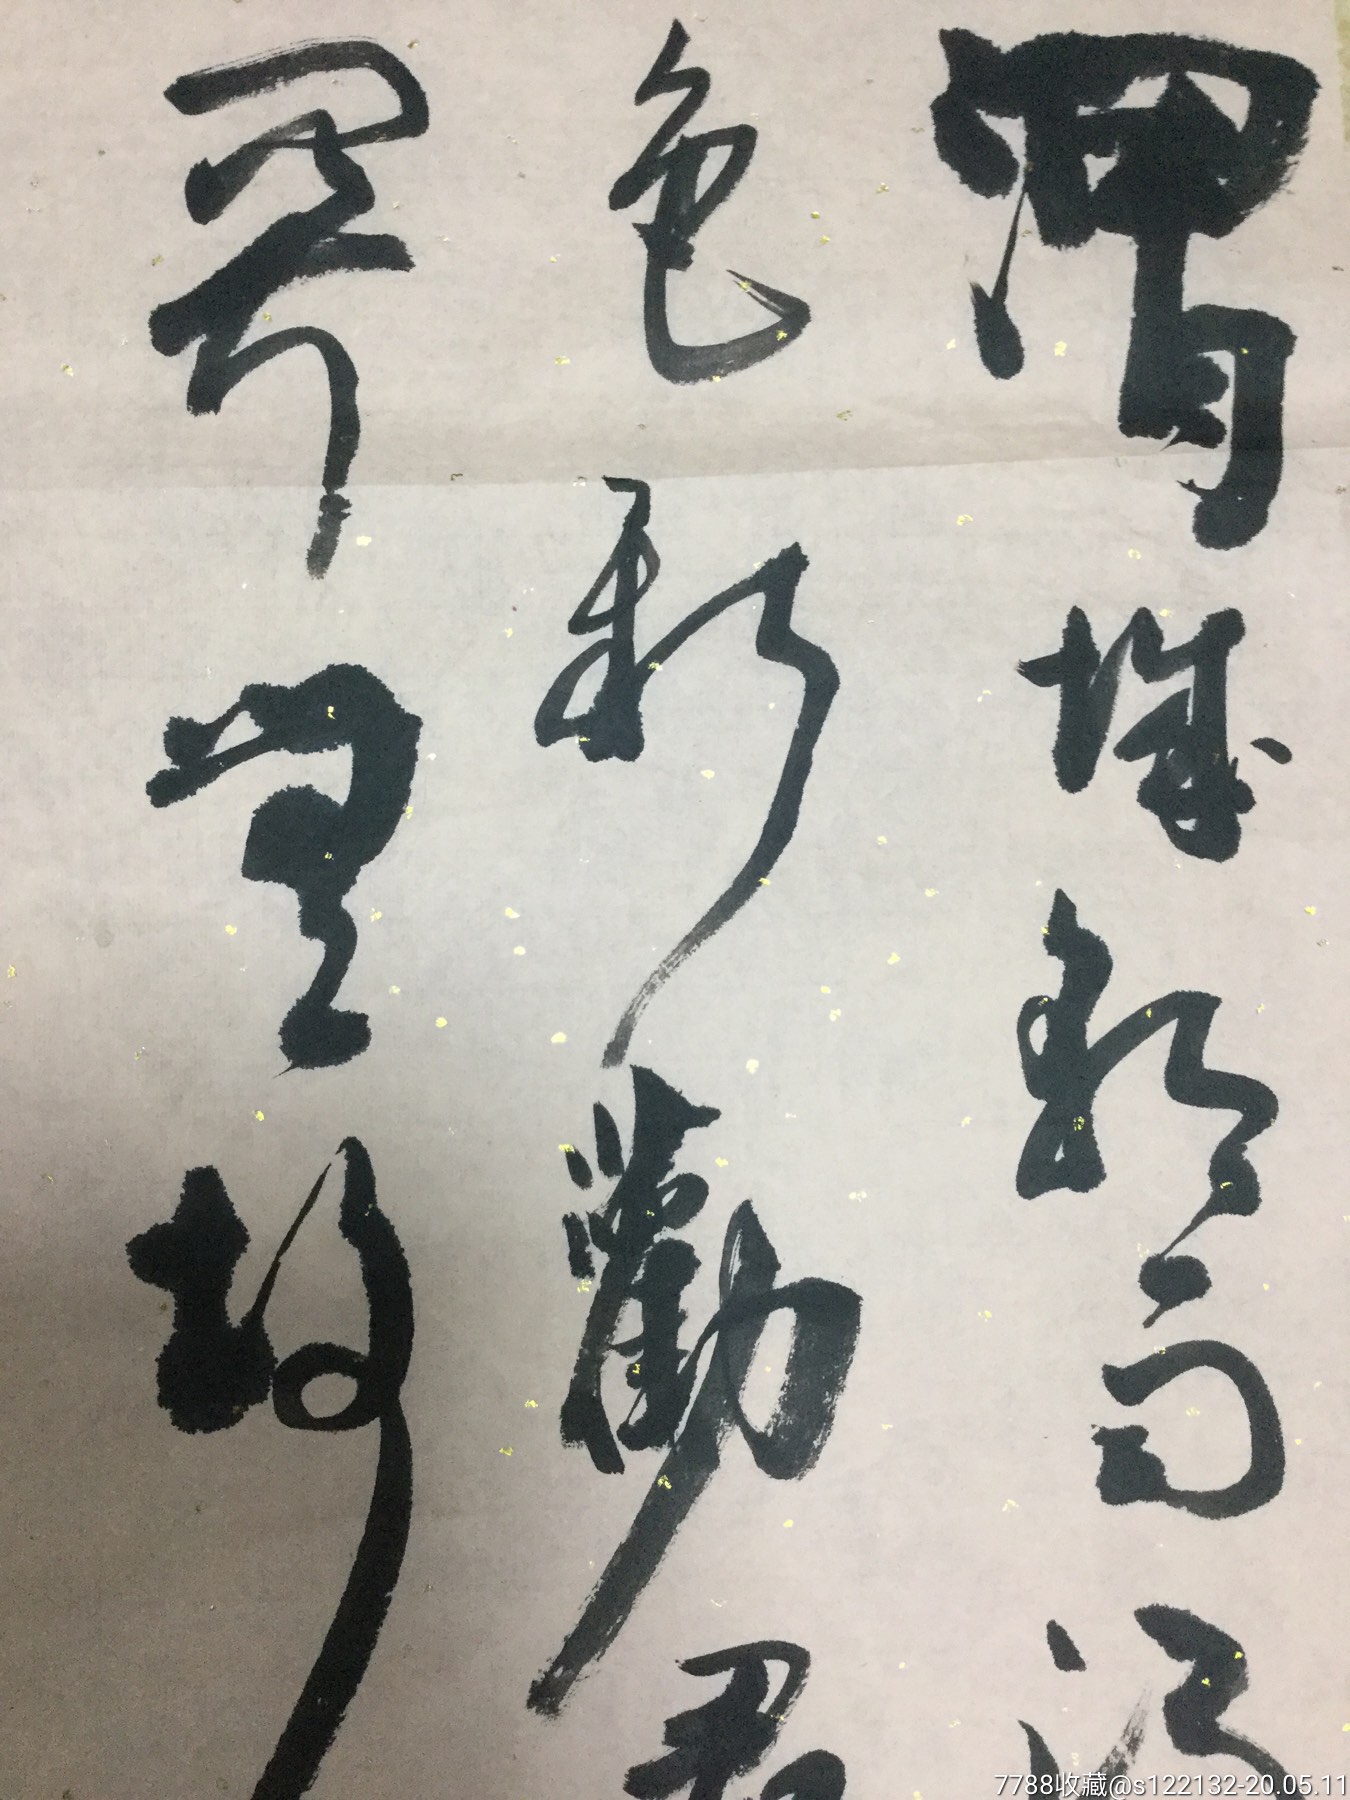 渭城朝雨浥
色新勸君
關無故
7788收藏@s122132-20.05.11